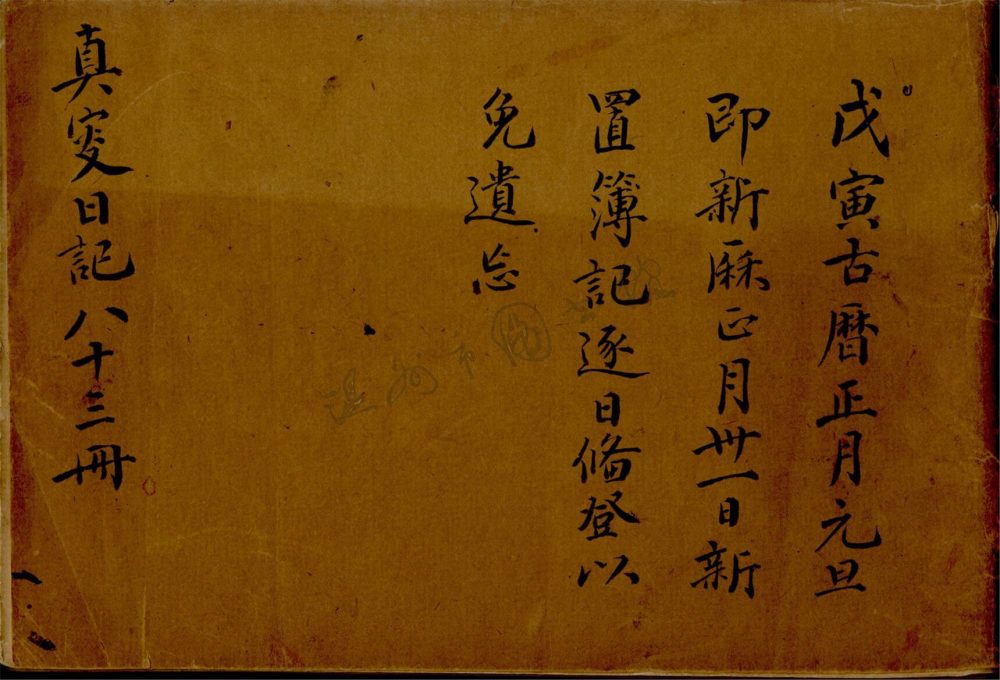 戊寅古曆正月元旦
即新厤正月卅一日新
置簿記逐日俻登以
免遺忘
真叟日記八十三冊
温州市图